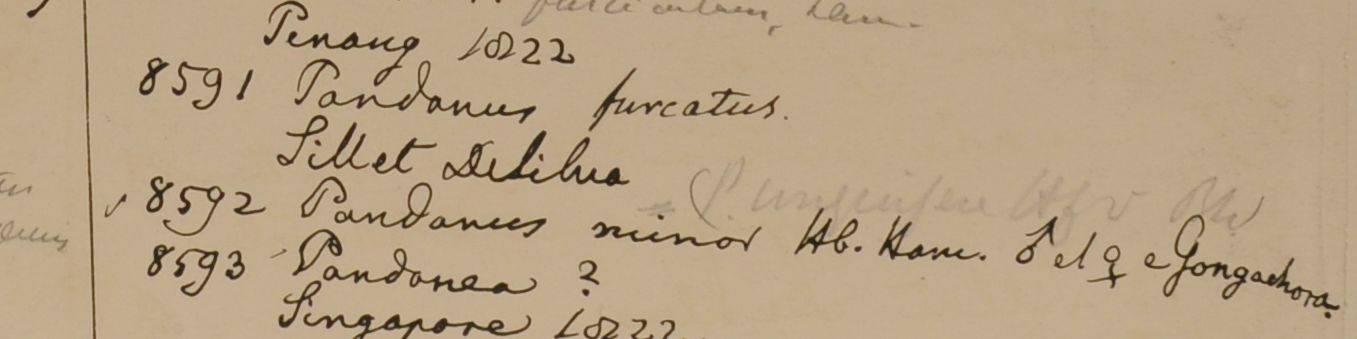 Penang 1822
8591 Pandanus furcatus.
Sillet DeSilva
8592 Pandanus minor Hb. Ham. ♂ et ♀ e Gongachora.
8593 Pandanea ?
Singapore 1822.